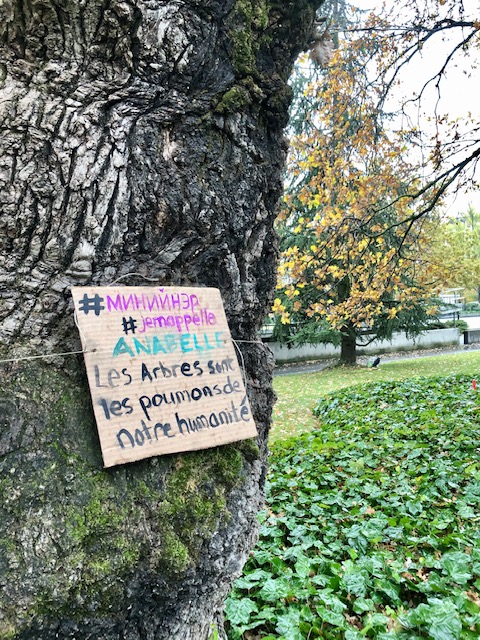 #МИНИЙНЭР
#jemappelle
ANABELLE
Les Arbres sont
les poumons de
notre humanité